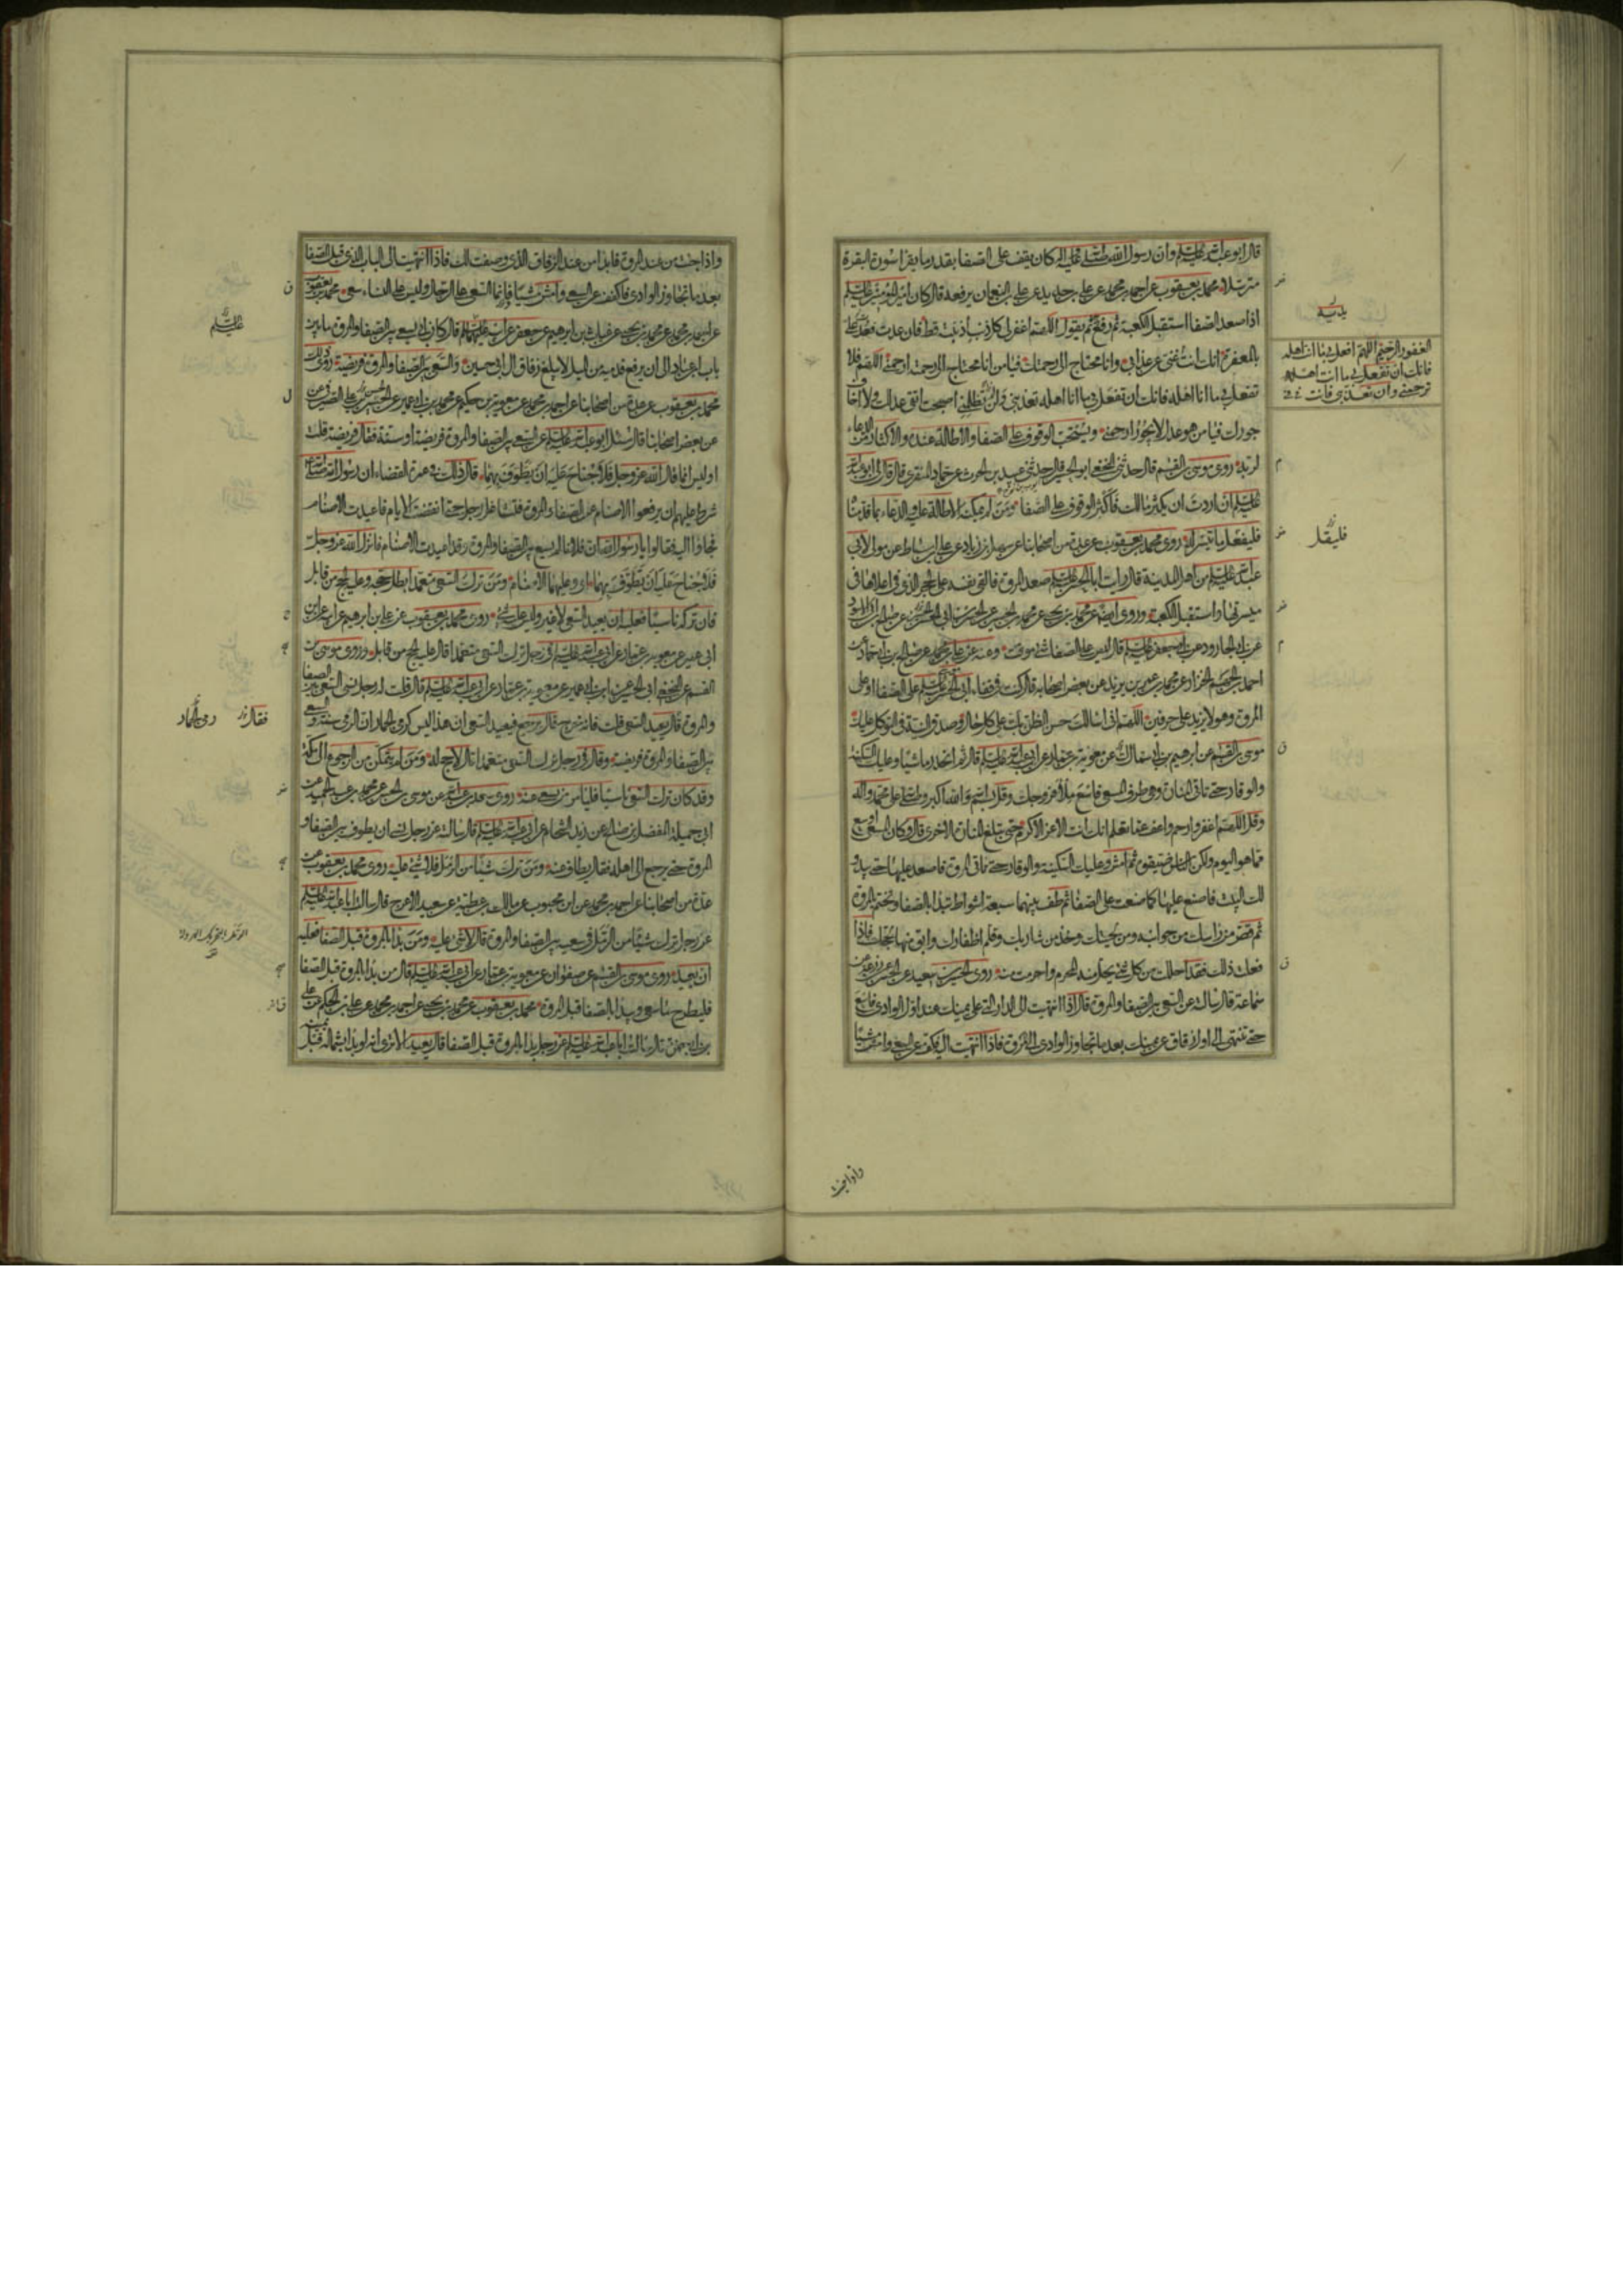 قال ابو عبدالله عليه السلم وان رسول الله صلى الله عليه واله كان يقف على الصفا بقدر ما يقرا سورة البقرة
مترتلا محمد بن يعقوب عن احمد بن محمد عن علي بن حديد عن علي بن النعمان يرفعه قال كان امير المؤمنين عليه السلم
اذا صعد الصفا استقبل الكعبة ثم رفع ثم يقول اللهم اغفر لي كل ذنب اذنبته قط فان عدت فعد علي
بالمغفرة انك انت غني عن عذابي وانا محتاج الى رحمتك فيا من انا محتاج الى رحمته ارحمني اللهم فلا
تفعل بي ما انا اهله فانك ان تفعل بي ما انا اهله تعذبني ولن تظلمني اصبحت اتقي عدلك ولا اخاف
جورك فيا من هو عدل لا يجور ارحمني ويستحب الوقوف على الصفا والاطالة عنده والاكثار من الدعاء
روى موسى بن القسم قال حدثني النخعي ابو الحسين قال حدثني عبيد بن الحرث عن حماد المنقري قال قال لي ابو عبدالله
عليه السلم ان اردت ان يكثر مالك فاكثر الوقوف على الصفا ومن لم يمكنه الاطالة عليه والدعاء بما قدمنا
فليفعل ما تيسر له روى محمد بن يعقوب عن عدة من اصحابنا عن سهل بن زياد عن علي بن اسباط عن مولى لابي
عبدالله عليه السلم من اهل المدينة قال رايت ابا الحسن عليه السلم صعد المروة فالقى نفسه على الحجر الذي في اعلاها في
ميسرتها واستقبل الكعبة وروى ايضا عن محمد بن يحيى عن محمد بن الحسين
عن ابي الجارود عن ابي جعفر عليه السلم قال ليس على الصفا شئ موقت وعنه
احمد بن الجهم الخزاز عن محمد بن عمر بن يزيد عن بعض اصحابه قال كنت في قفاء ابي الحسن عليه السلم على الصفا او على
المروة وهو لا يزيد على حرفين اللهم اني اسالك حسن الظن بك على كل حال وصدق النية في التوكل عليك
موسى بن القسم عن ابرهيم بن ابي سمال عن معوية بن عمار عن ابي عبدالله عليه السلم قال ثم انحدر ماشيا وعليك السكينة
والوقار حتى تاتي المنارة وهي طرف المسعى فاسع ملأ فروجك وقل بسم الله والله اكبر وصلى الله على محمد واله
وقل اللهم اغفر وارحم واعف عما تعلم انك انت الاعز الاكرم حتى تبلغ المنارة الاخرى قال وكان المسعى اوسع
مما هو اليوم ولكن الناس ضيقوه ثم امش وعليك السكينة والوقار حتى تاتي المروة فاصعد عليها حتى يبدو
لك البيت فاصنع عليها كما صنعت على الصفا ثم طف بينهما سبعة اشواط تبدا بالصفا وتختم بالمروة
ثم قصر من راسك من جوانبه ومن لحيتك وخذ من شاربك وقلم اظفارك وابق منها لحجك فاذا
فعلت ذلك فقد احللت من كل شئ يحل منه المحرم واحرمت منه روى الحسين بن سعيد عن الحسن عن زرعة عن
سماعة قال سالته عن السعي بين الصفا والمروة قال اذا انتهيت الى الدار التي على يمينك عند اول الوادي فاسع
حتى تنتهي الى اول زقاق عن يمينك بعد ما تجاوز الوادي الى المروة فاذا انتهيت اليه فكف عن السعي وامش مشيا
الغفور الرحيم اللهم افعل بي ما انت اهله
فانك ان تفعل بي ما انت اهله
ترحمني وان تعذبني فانت
يديه
فليقل
واذا جئت
واذا جئت من عند المروة فابدا من عند الزقاق الذي وصفت لك فاذا انتهيت الى الباب الذي قبل الصفا
بعد ما تجاوز الوادي فاكفف عن السعي وامش مشيا فانما السعي على الرجال وليس على النساء سعي محمد بن يعقوب
عن احمد بن محمد عن محمد بن يحيى عن غياث بن ابرهيم عن جعفر عن ابيه عليهما السلم قال كان ابي يسعى بين الصفا والمروة ما بين
باب ابن عباد الى ان يرفع قدميه من المسيل لا يبلغ زقاق ال ابي حسين والسعي بين الصفا والمروة فريضة روى ذلك
محمد بن يعقوب عن عدة من اصحابنا عن احمد بن محمد عن معوية بن حكيم عن محمد بن ابي عمير عن الحسن بن علي الصيرفي
عن بعض اصحابنا قال سئل ابو عبدالله عليه السلم عن السعي بين الصفا والمروة فريضة او سنة فقال فريضة قلت
اوليس انما قال الله عز وجل فلا جناح عليه ان يطوف بهما قال ذلك في عمرة القضاء ان رسول الله صلى الله عليه واله
شرط عليهم ان يرفعوا الاصنام عن الصفا والمروة فتشاغل رجل حتى انقضت الايام فاعيدت الاصنام
فجاؤا اليه فقالوا يا رسول الله ان فلانا لم يسع بين الصفا والمروة وقد اعيدت الاصنام فانزل الله عز وجل
فلا جناح عليه ان يطوف بهما اي وعليهما الاصنام ومن ترك السعي متعمدا بطل حجه وعليه الحج من قابل
فان تركه ناسيا فعليه ان يعيد السعي لا غير وليس عليه شئ روى محمد بن يعقوب عن علي بن ابرهيم عن ابيه عن ابن
ابي عمير عن معوية بن عمار عن ابي عبدالله عليه السلم في رجل ترك السعي متعمدا قال عليه الحج من قابل وروى موسى بن
القسم عن النخعي ابي الحسين عن ابن ابي عمير عن معوية بن عمار عن ابي عبدالله عليه السلم قال قلت له رجل نسي السعي بين الصفا
والمروة قال يعيد السعي قلت فانه خرج قال يرجع فيعيد السعي ان هذا ليس كرمي الجمار ان الرمي سنة والسعي
بين الصفا والمروة فريضة وقال في رجل ترك السعي متعمدا قال لا حج له ومن لم يتمكن من الرجوع الى مكة
وقد كان ترك السعي ناسيا فليامر من يسعى عنه روى سعد بن عبدالله عن موسى بن الحسن عن محمد بن عبد الحميد عن
ابي جميلة المفضل بن صالح عن زيد الشحام عن ابي عبدالله عليه السلم قال سالته عن رجل نسي ان يطوف بين الصفا و
المروة حتى يرجع الى اهله فقال يطاف عنه ومن ترك شيئا من الرمل فلا شئ عليه روى محمد بن يعقوب عن
عدة من اصحابنا عن احمد بن محمد عن ابن محبوب عن مالك بن عطية عن سعيد الاعرج قال سالت ابا عبدالله عليه السلم
عن رجل ترك شيئا من الرمل في سعيه بين الصفا والمروة قال لا شئ عليه ومن بدا بالمروة قبل الصفا فعليه
ان يعيد روى موسى بن القسم عن صفوان عن معوية بن عمار عن ابي عبدالله عليه السلم قال من بدا بالمروة قبل الصفا
فليطرح ما سعى ويبدا بالصفا قبل المروة محمد بن يعقوب عن محمد بن يحيى عن احمد بن محمد عن علي بن الحكم عن علي
بن ابي حمزة قال سالت ابا عبدالله عليه السلم عن رجل بدا بالمروة قبل الصفا قال يعيد الا ترى انه لو بدا بشماله قبل
عليه السلم
فقال
رمى الجمار